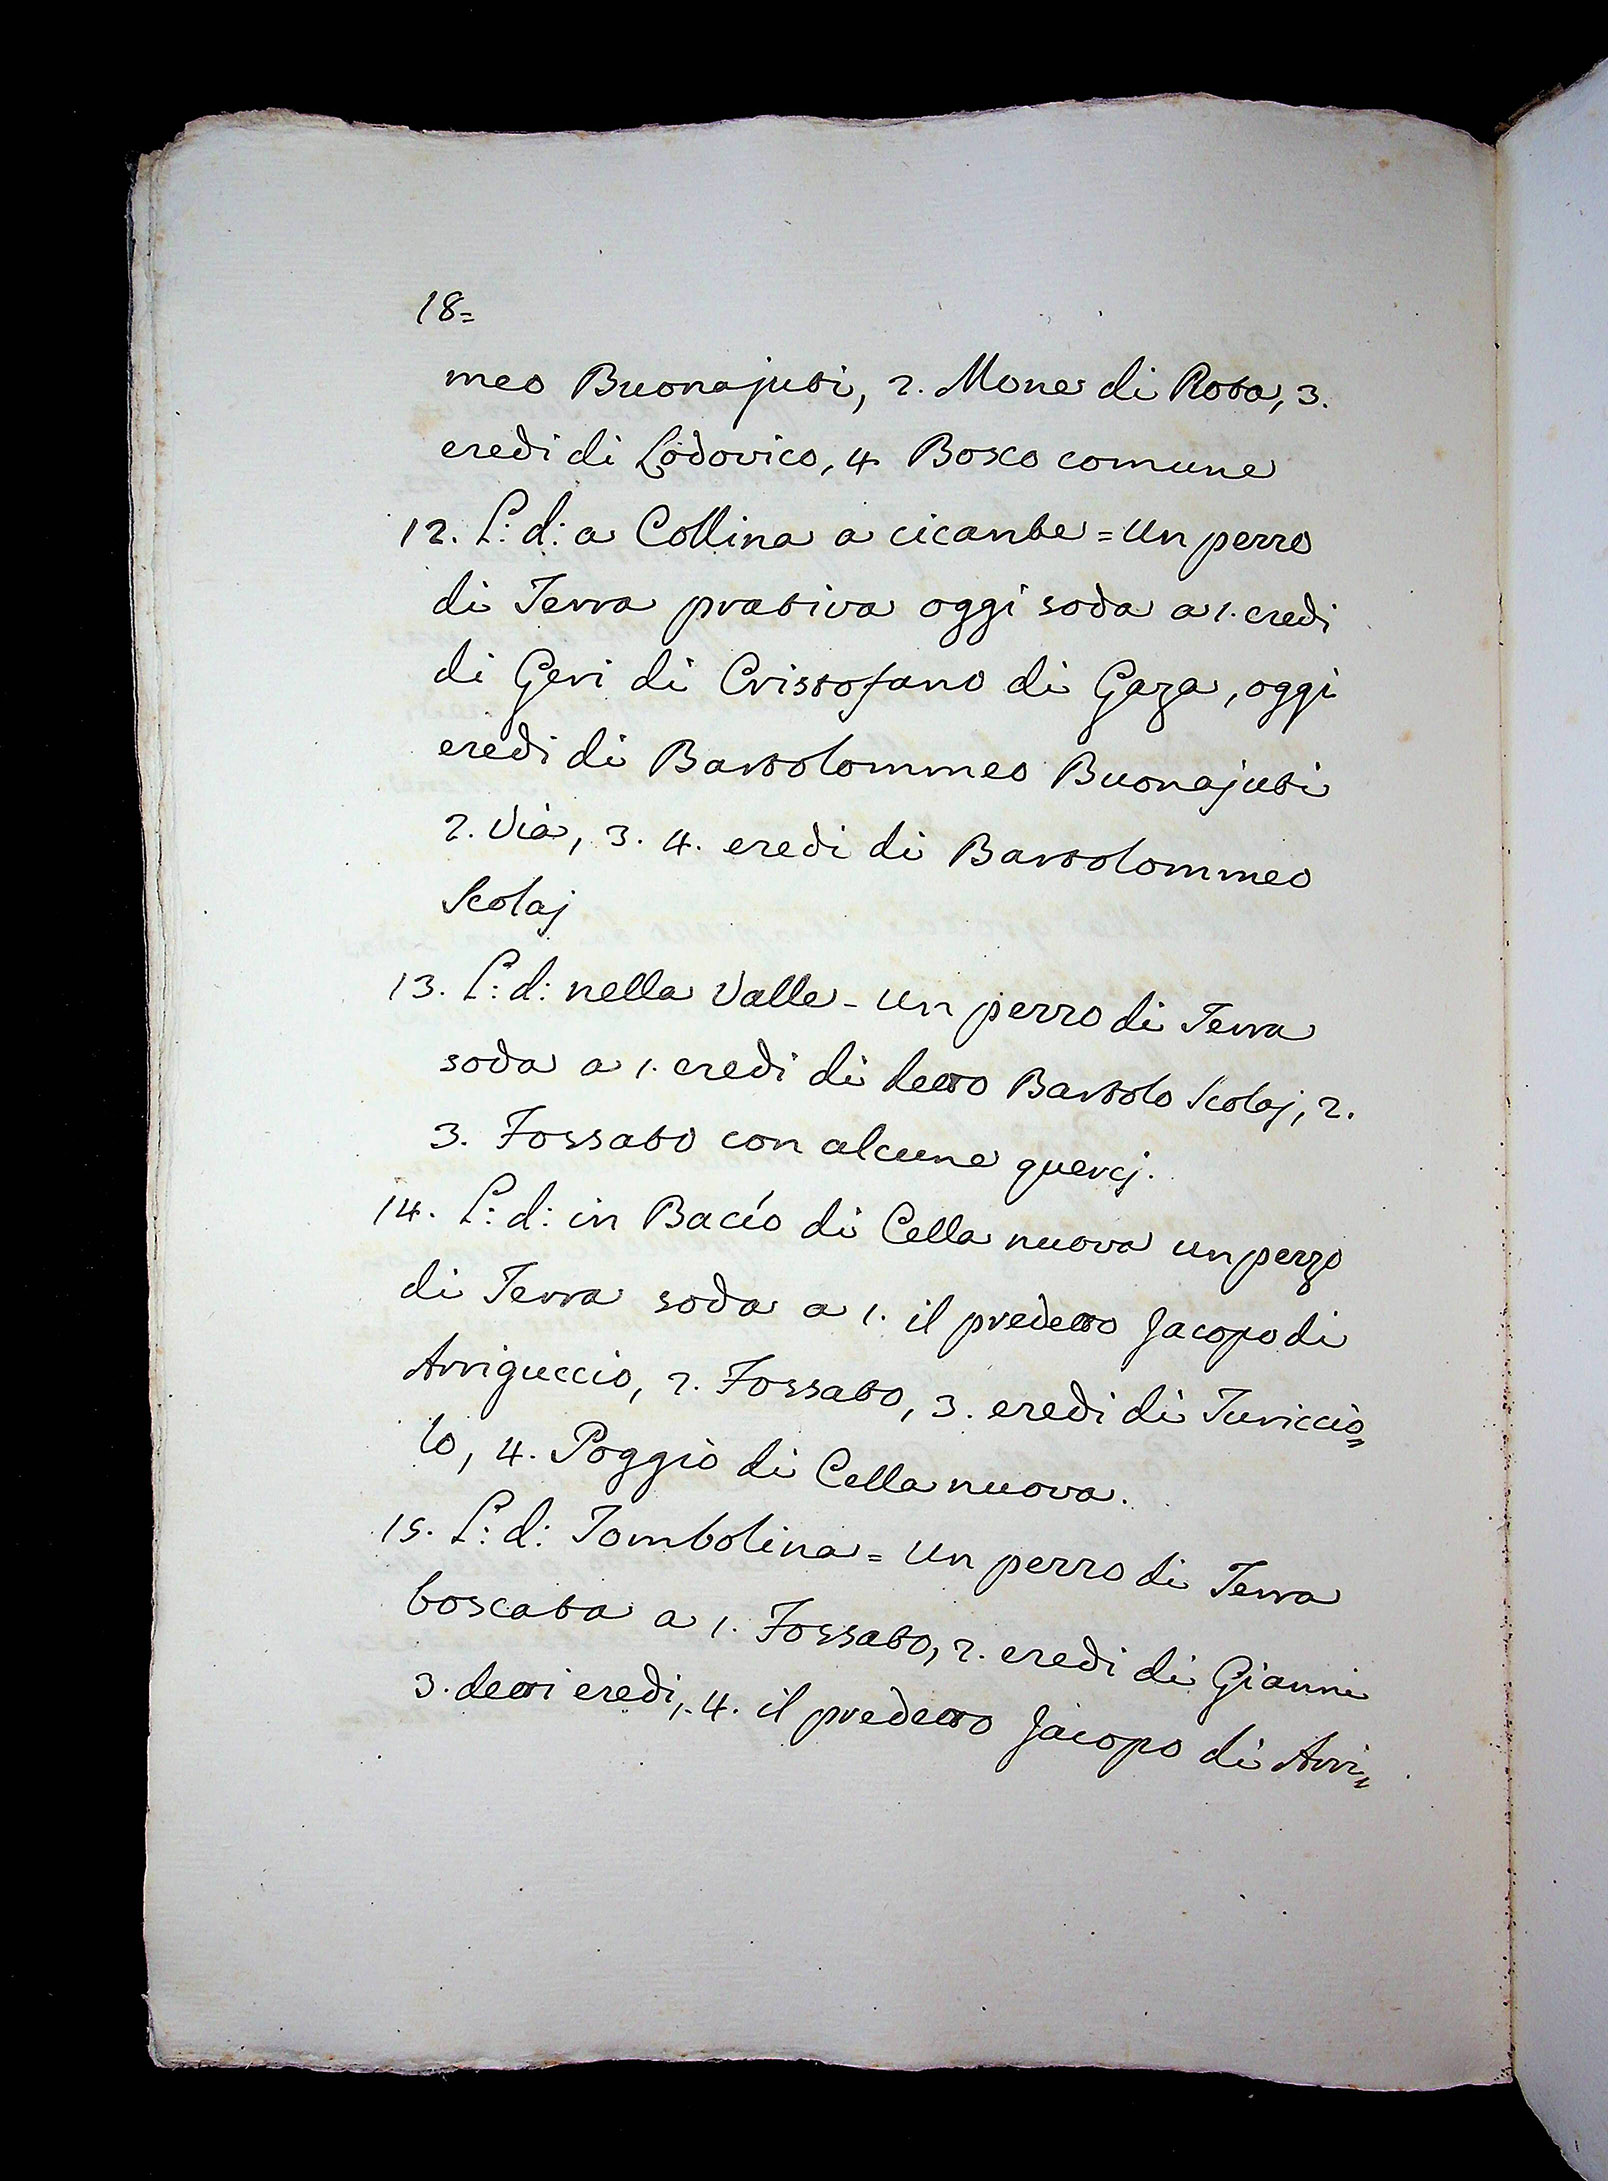 18=
meo Buonajuti, 2. Mone di Rota, 3.
eredi di Lodovico, 4 Bosco comune
12. L: d: a Collina a cicante = Un pezzo
di Terra prativa oggi soda a 1. eredi
di Geri di Cristofano di Gaza, oggi
eredi di Bartolommeo Buonajuti
2. Via, 3. 4. eredi di Bartolommeo
Scolaj
13. L: d: nella Valle - Un pezzo di Terra
soda a 1. eredi di detto Bartolo Scolaj, 2.
3. Fossato con alcune quercj.
14. L: d: in Bacío di Cella nuova un pezzo
di Terra soda a 1. il predetto Jacopo di
Arriguccio, 2. Fossato, 3. eredi di Turiccio=
lo, 4. Poggio di Cella nuova.
15. L: d: Tombolina = Un pezzo di Terra
boscata a 1. Fossato, 2. eredi di Gianni
3. detti eredi, 4. il predetto Jacopo di Arri=